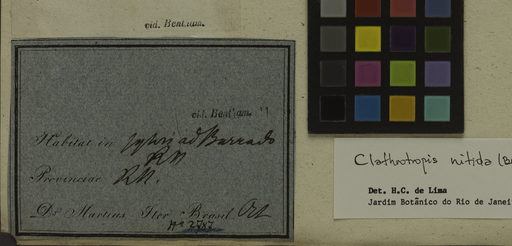 vid. Bentham.
vid. Bentham.
Habitat in sylvis ad Barra do
RN
Provinciae RN.
Dr. Martius Iter Brasil. Oct
No 2787
Clathrotropis nitida (B
Det. H.C. de Lima
Jardim Botânico do Rio de Janei